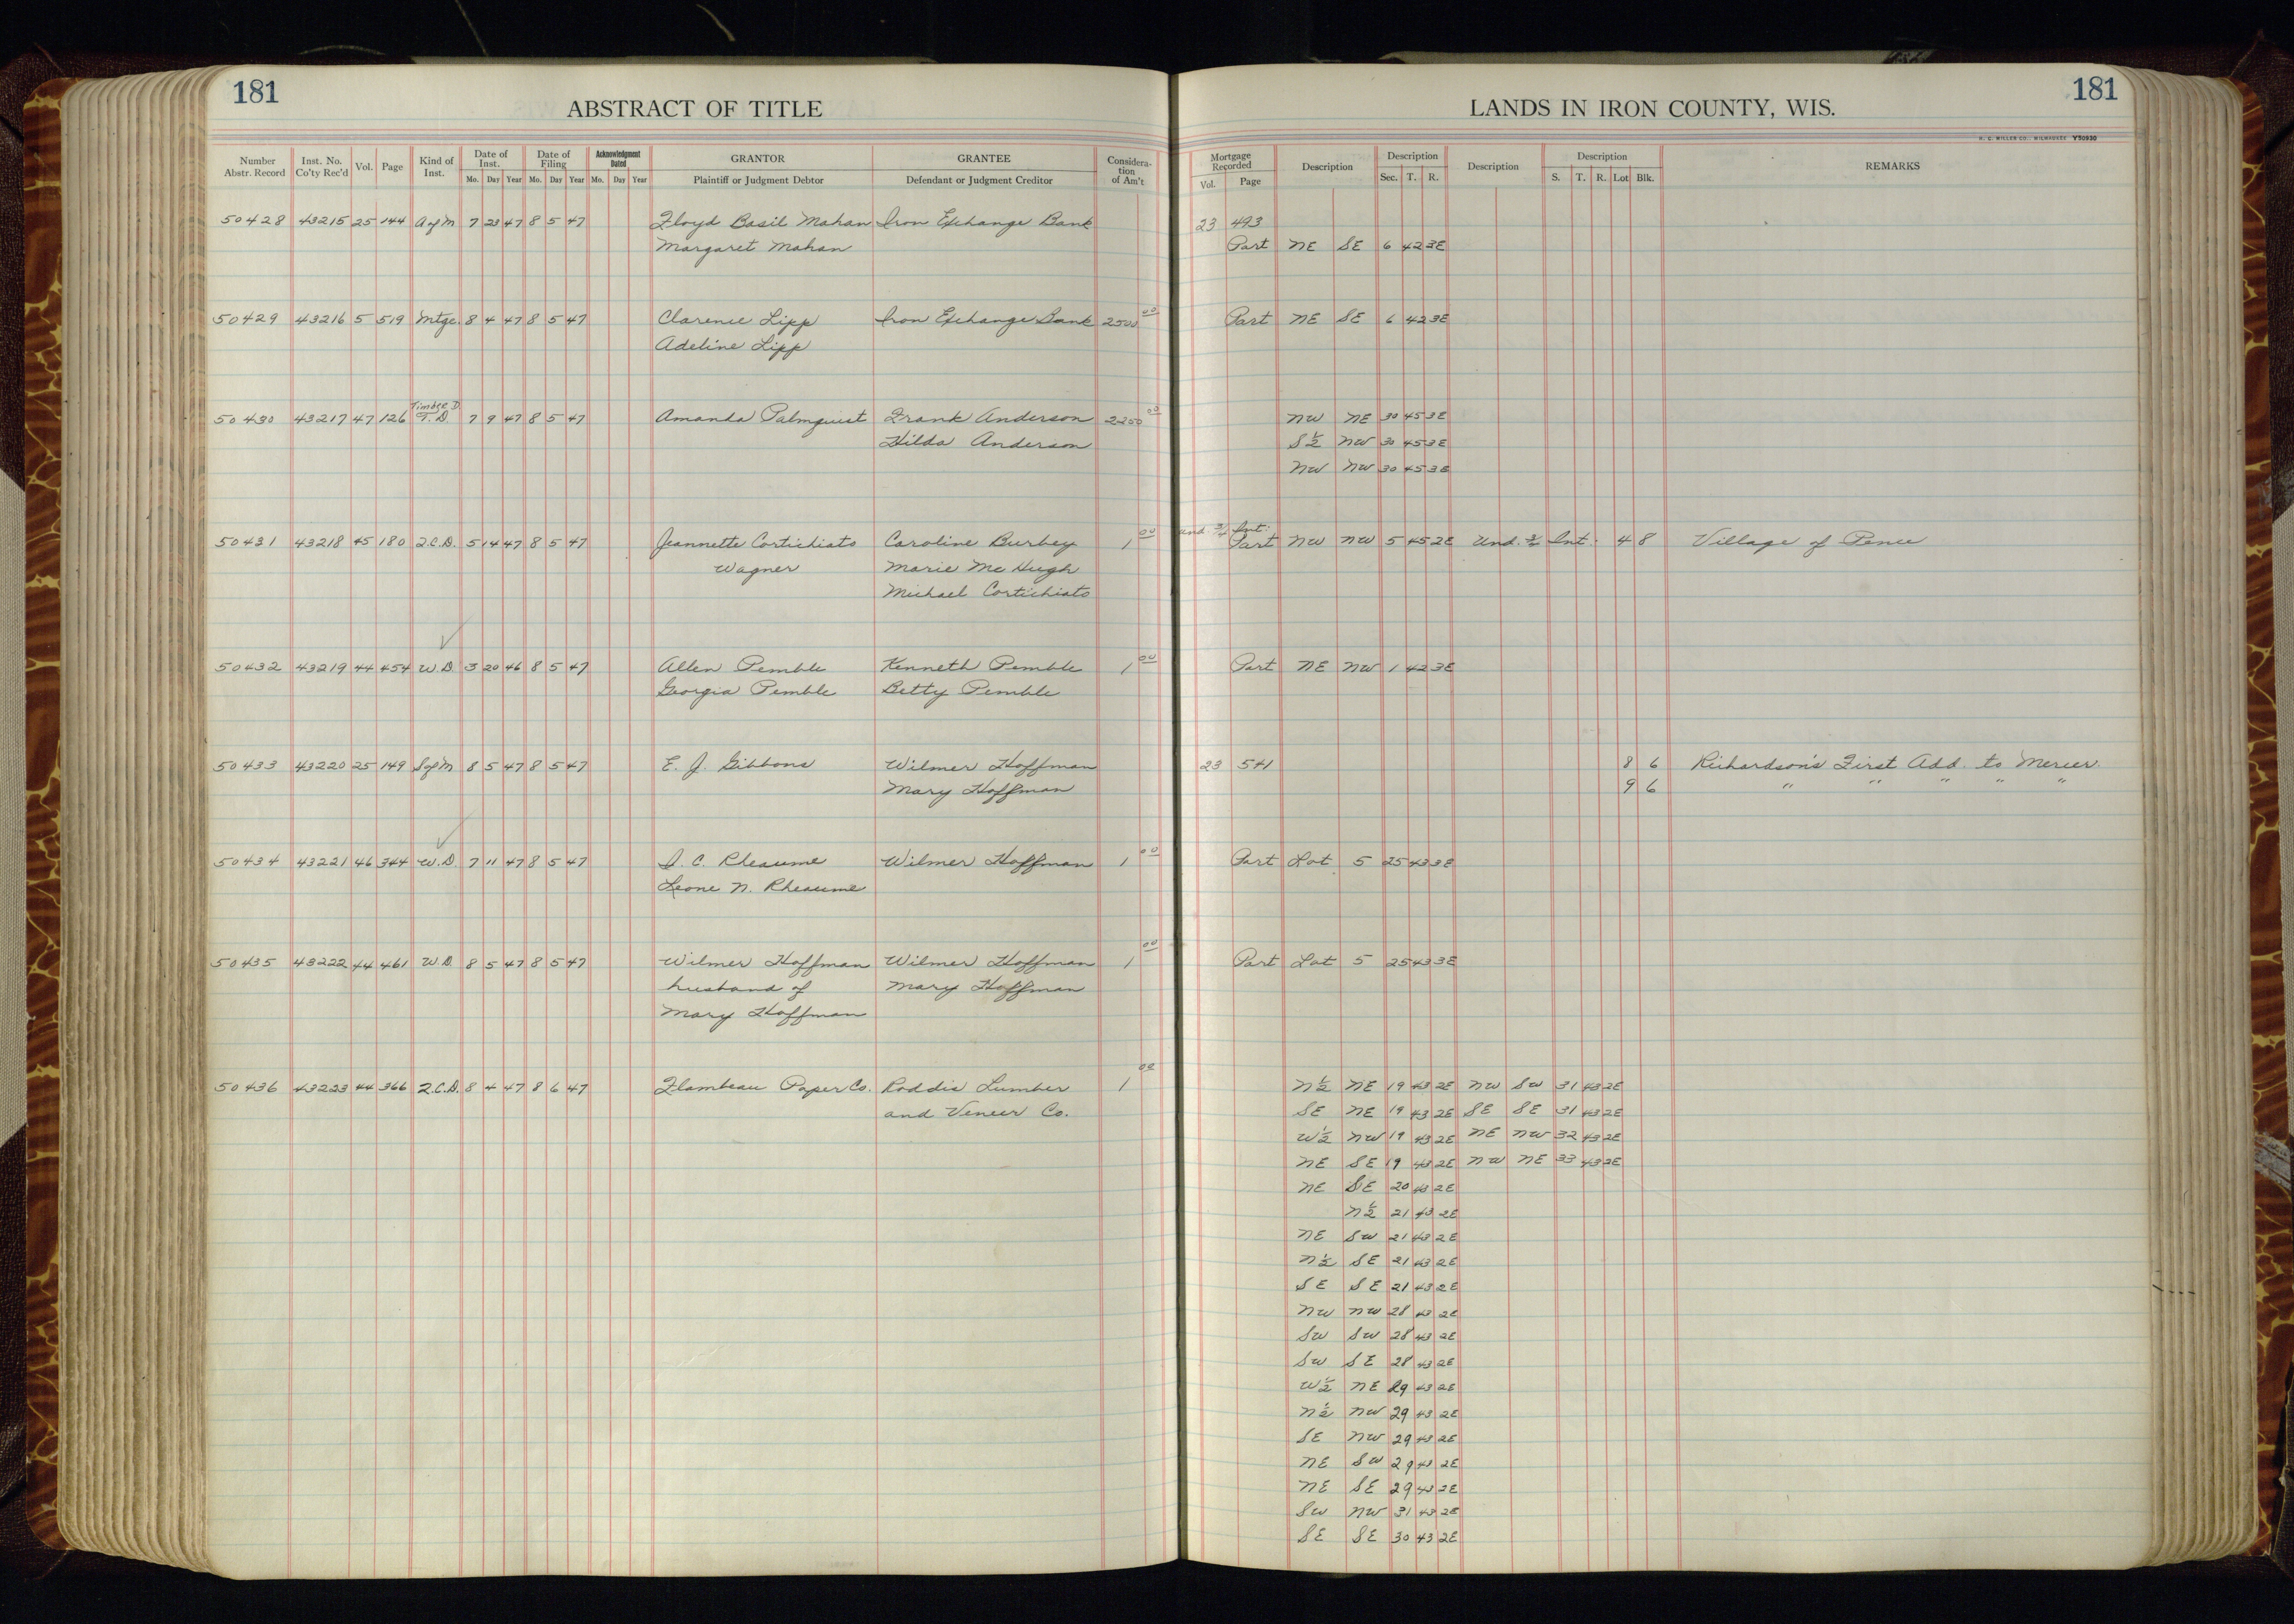 181
ABSTRACT OF TITLE
LANDS IN IRON COUNTY, WIS.
181
H. C. MILLER CO., MILWAUKEE Y50930
Number Abstr. Record Inst. No. Co'ty Rec'd Vol. Page Kind of Inst. Date of Inst. Mo. Day Year Date of Filing Mo. Day Year Acknowledgment Dated Mo. Day Year GRANTOR Plaintiff or Judgment Debtor GRANTEE Defendant or Judgment Creditor Considera-tion of Am't Mortgage Recorded Vol. Page Description Description Sec. T. R. Description Description S. T. R. Lot Blk. REMARKS
50428 43215 25 144 A of M 7 23 47 8 5 47 Floyd Basil Mahan Iron Exchange Bank 23 493
Margaret Mahan Part NE SE 6 42 3E
50429 43216 5 519 Mtge. 8 4 47 8 5 47 Clarence Lipp Iron Exchange Bank 2500 00 Part NE SE 6 42 3E
Adeline Lipp
Timber D.
50430 43217 47 126 T.D. 7 9 47 8 5 47 Amanda Palmquist Frank Anderson 2250 00 NW NE 30 45 3E
Hilda Anderson S½ NW 30 45 3E
NW NW 30 45 3E
Und. ¾ Int.
50431 43218 45 180 Q.C.D. 5 14 47 8 5 47 Jeannette Cortichiato Caroline Burbey 1 00 Part NW NW 5 45 2E Und. Int. 4 8 Village of Pence
Wagner Marie McHugh
Michael Cortichiato
50432 43219 44 454 W.D. 3 20 46 8 5 47 Allen Pemble Kenneth Pemble 1 00 Part NE NW 1 42 3E
Georgia Pemble Betty Pemble
50433 43220 25 149 S of M 8 5 47 8 5 47 E. J. Gibbons Wilmer Hoffman 23 541 8 6 Richardson's First Add. to Mercer.
Mary Hoffman 9 6 " " " " "
50434 43221 46 344 W.D. 7 11 47 8 5 47 D. C. Rheaume Wilmer Hoffman 1 00 Part Lot 5 25 43 3E
Leone N. Rheaume
50435 43222 44 461 W.D. 8 5 47 8 5 47 Wilmer Hoffman Wilmer Hoffman 1 00 Part Lot 5 25 43 3E
husband of Mary Hoffman
Mary Hoffman
50436 43223 44 366 Q.C.D. 8 4 47 8 6 47 Flambeau Paper Co. Roddis Lumber 1 00 N½ NE 19 43 2E NW SW 31 43 2E
and Veneer Co. SE NE 19 43 2E SE SE 31 43 2E
W½ NW 19 43 2E NE NW 32 43 2E
NE SE 19 43 2E NW NE 33 43 2E
NE SE 20 43 2E
N½ 21 43 2E
NE SW 21 43 2E
N½ SE 21 43 2E
SE SE 21 43 2E
NW NW 28 43 2E
SW SW 28 43 2E
SW SE 28 43 2E
W½ NE 29 43 2E
N½ NW 29 43 2E
SE NW 29 43 2E
NE SW 29 43 2E
NE SE 29 43 2E
SW NW 31 43 2E
SE SE 30 43 2E